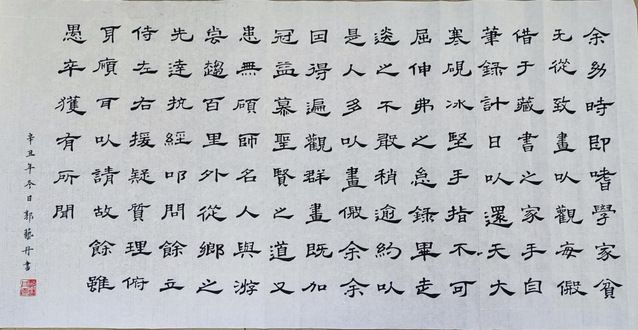 余幼時即嗜學家貧
无從致畫以觀每假
借于藏書之家手自
筆錄計日以還天大
寒硯冰堅手指不可
屈伸弗之怠錄畢走
送之不敢稍逾約以
是人多以畫假余余
因得遍觀群畫既加
冠益慕聖賢之道又
患無碩師名人與游
嘗趨百里外從鄉之
先達執經叩問餘立
侍左右援疑質理俯
身傾耳以請故餘雖
愚卒獲有所聞
辛丑年冬日郭藝丹書